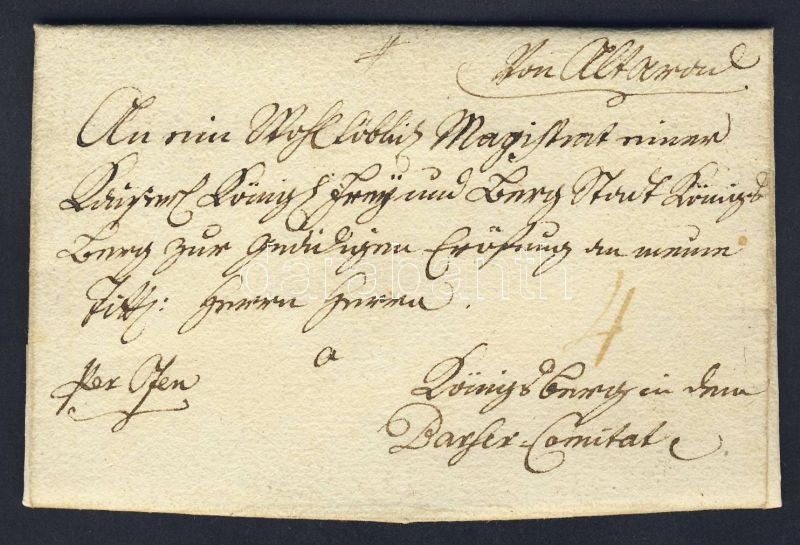 Von Altaron
An ein Wohllöblich Magistrat einer
Kayserl König: Frey und Berg Stadt Königs
Berg zur Gnädigen Eröfnung an meine
Titl: Herrn Herrn.
a
4
per Ofen
Königsberg in dem
Barser-Comitat
darabanth